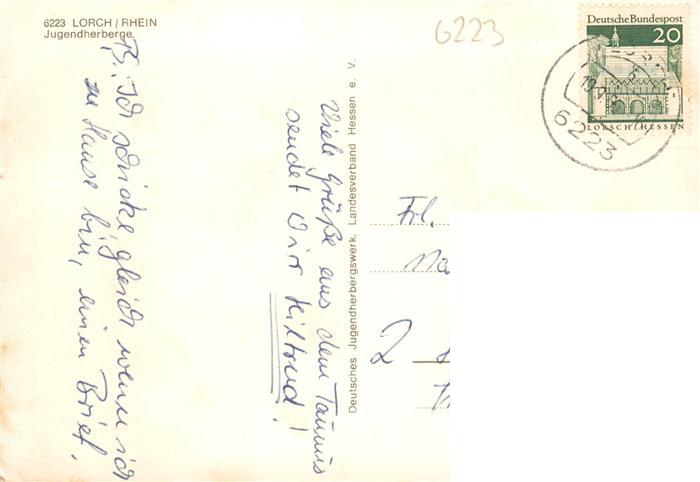 6223 LORCH / RHEIN
Jugendherberge
6223
Deutsche Bundespost
20
LORSCH/HESSEN
6223
Viele Grüße aus dem Taunus
sendet Dir Hiltrud!
B.: Ich schicke, gleich wenn ich
zu Hause bin, einen Brief.
Deutsches Jugendherbergswerk, Landesverband Hessen e. V.
Frl.
2